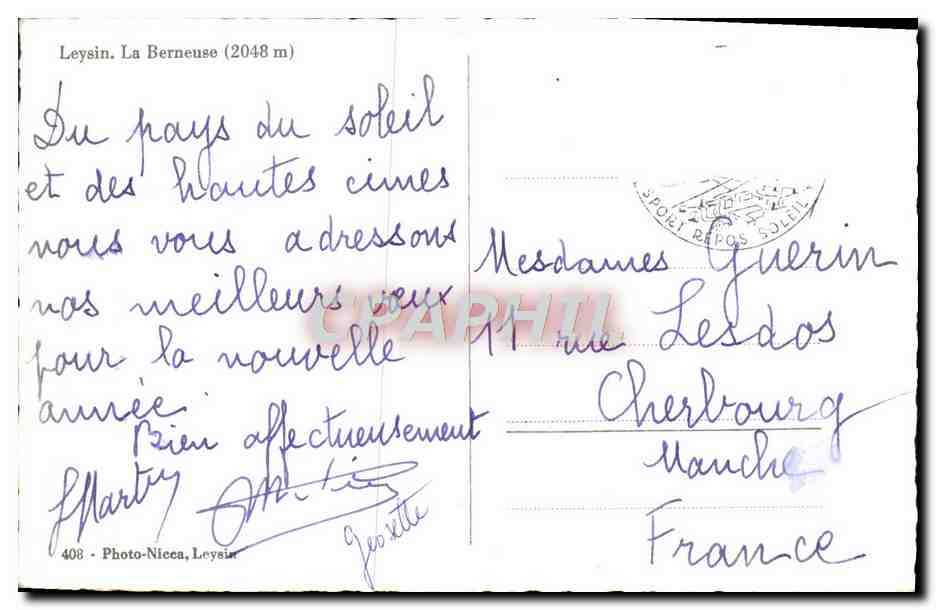 Leysin. La Berneuse (2048 m)
Du pays du soleil
et des hautes cimes
nous vous adressons
nos meilleurs vœux
pour la nouvelle
année.
Bien affectueusement
Josette
408 - Photo-Nicca, Leysin
SPORT REPOS SOLEIL
Mesdames Guerin
11 rue Lesdos
Cherbourg
Manche
France
CPAPHIL